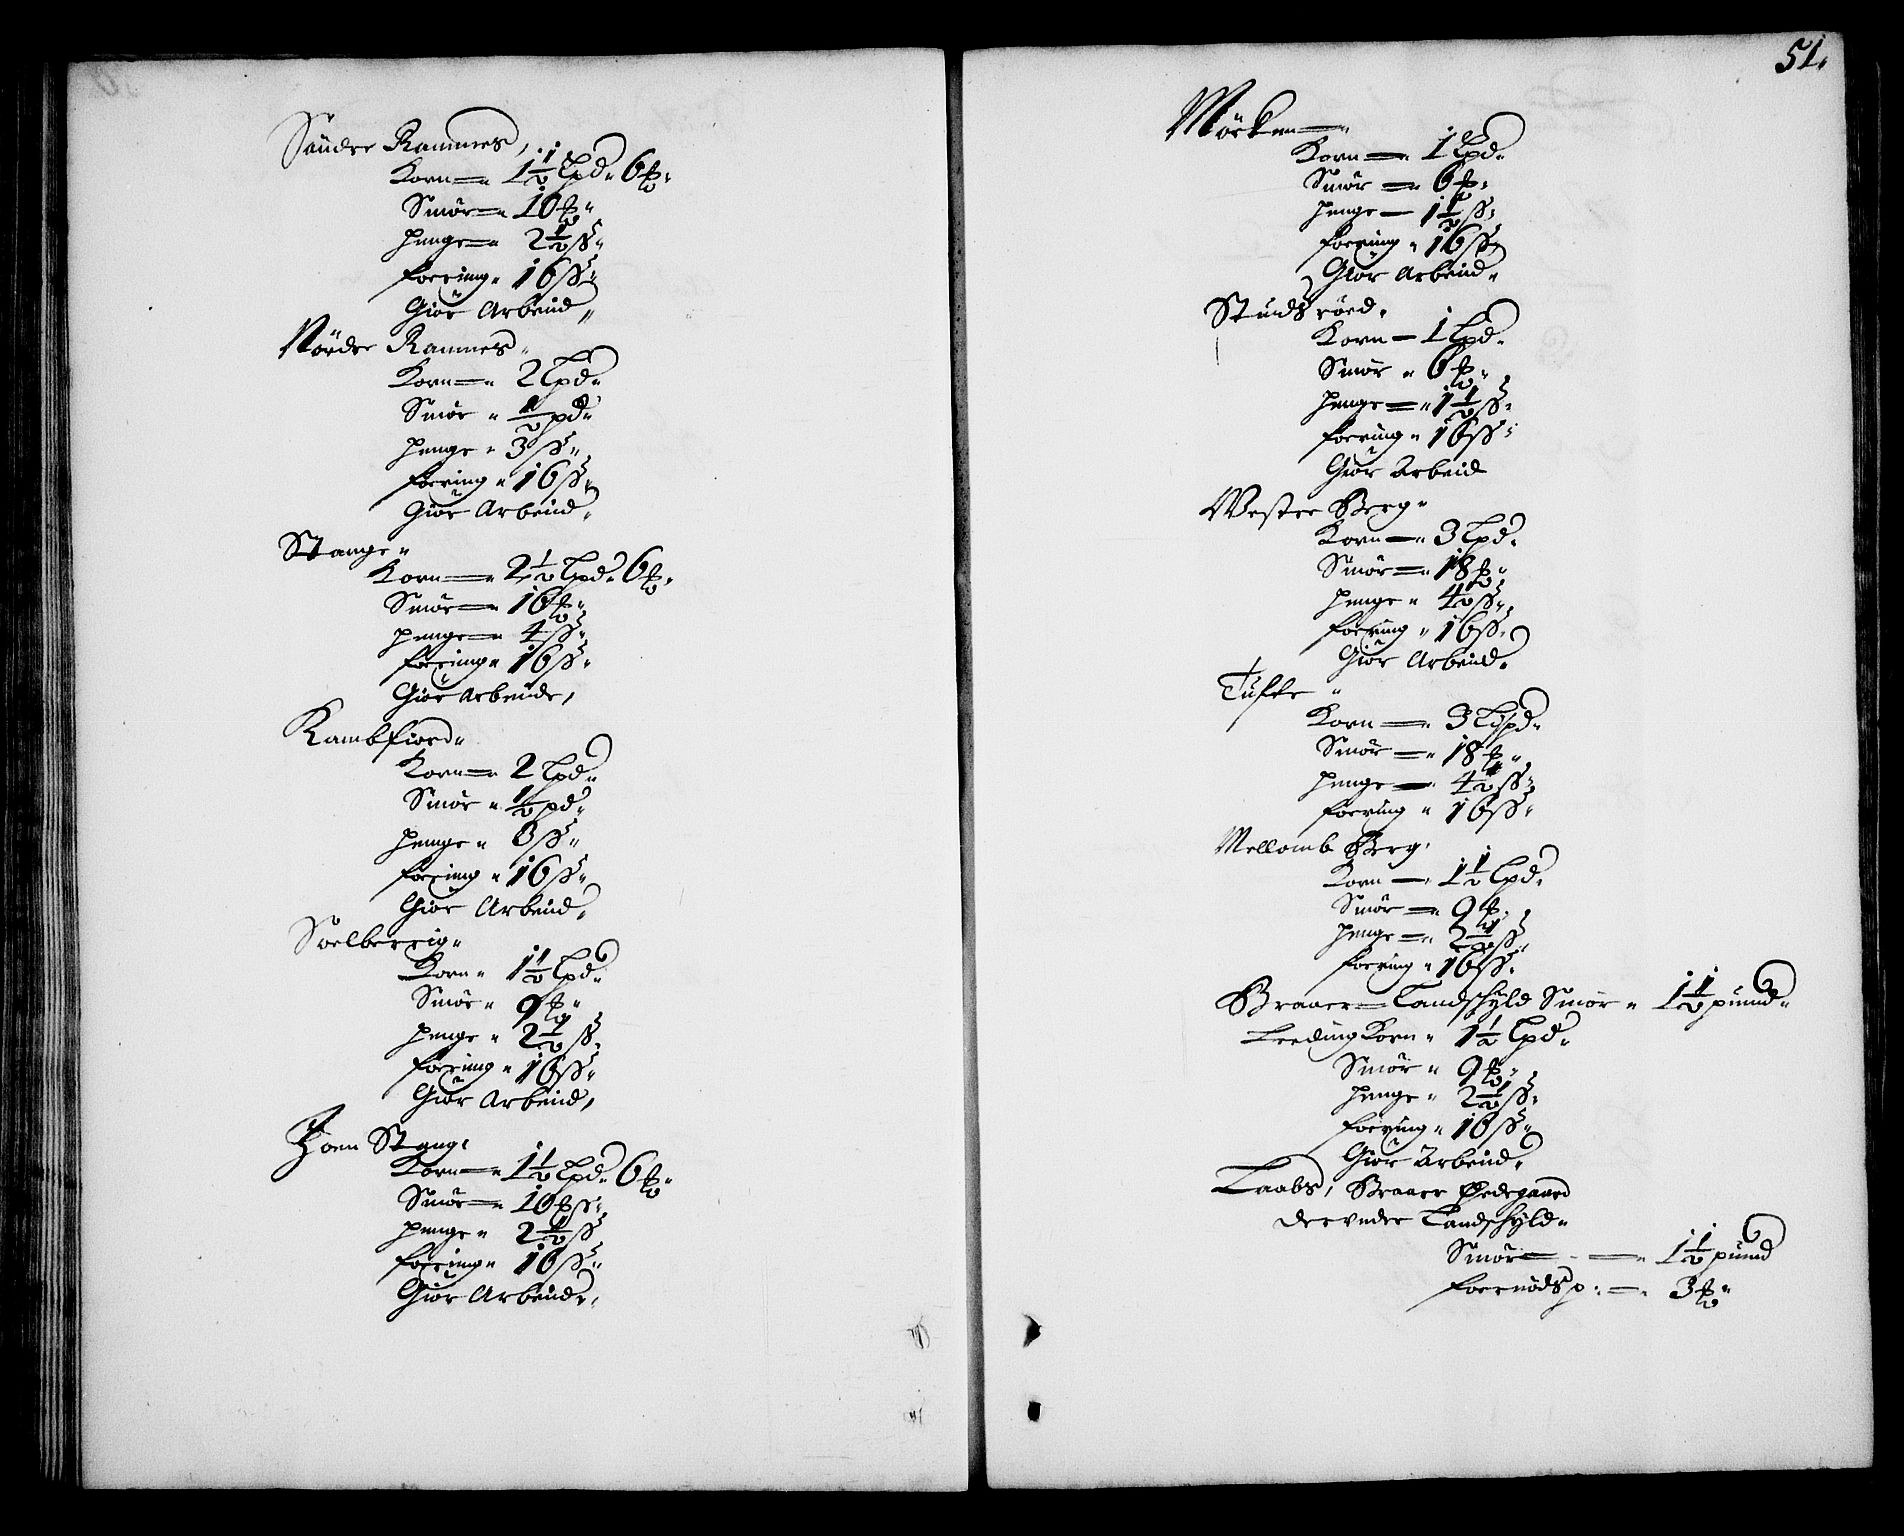 Søndre Rammes,
Korn = 1½ Lpd. 6 ℔.
Smør = 10 ℔.
penge = 2½ ß.
foering. 16 ß.
Giør Arbeid,
Nordre Rammes.
Korn = 2 Lpd.
Smør. ½ pd.
penge. 3 ß.
foering. 16 ß.
Giør Arbeid.
Stange.
Korn = 2½ Lpd. 6 ℔.
Smør = 16 ℔.
penge = 4 ß.
foering. 16 ß.
Giør Arbeide,
Kambfiord.
Korn = 2 Lpd.
Smør. ½ pd.
penge. 3 ß.
foering. 16 ß.
Giør Arbeid.
Soelberrig.
Korn. 1½ Lpd.
Smør. 9 ℔.
penge. 2½ ß.
foering. 16 ß.
Giør Arbeid,
Stang.
Korn = 1½ Lpd. 6 ℔.
Smør = 10 ℔.
penge. 2½ ß
foering. 16 ß.
Giør Arbeide.
51.
Mörken =
Korn = 1 Lpd.
Smør = 6 ℔.
penge = 1½ ß.
foering. 16 ß.
Giør Arbeid.
Studsrøed.
Korn = 1 Lpd.
Smør. 6 ℔.
penge = 1½ ß.
foering. 16 ß.
Giør Arbeid
Wester Berg.
Korn = 3 Lpd.
Smør = 18 ℔.
penge. 4½ ß.
foering. 16 ß.
Giør Arbeid.
Tufte.
Korn = 3 Lispd.
Smør = 18 ℔.
penge = 4½ ß.
foering. 16 ß.
Mellomb Berg.
Korn = 1½ Lpd.
Smør = 9 ℔.
penge = 2½ ß.
foering. 16 ß.
Braaer = Landschyld Smør. 1½ puund.
Leeding Korn. 1½ Lpd.
Smør. 9 ℔.
penge. 2½ ß.
foering. 16 ß.
Giør Arbeid.
Laabs, Braaer Ødegaard
derunder Landschyld.
Smør = = 1½ puund
foernødsp: = 3 ℔.